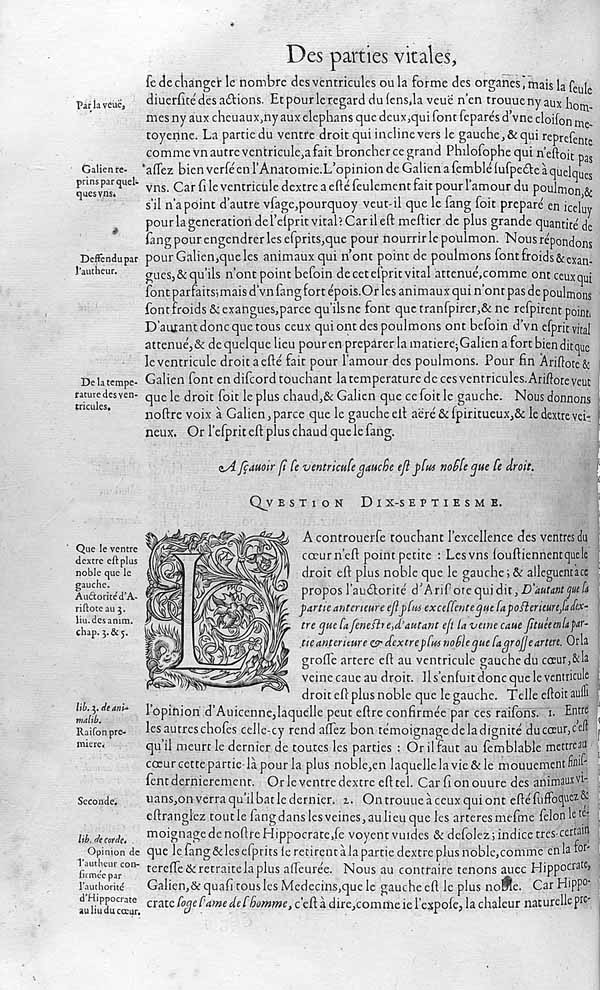 Des parties vitales,
ſe de changer le nombre des ventricules ou la forme des organes, mais la ſeule
Par la veuë,
diuerſité des actions. Et pour le regard du ſens, la veuë n'en trouue ny aux hom-
mes ny aux cheuaux, ny aux elephans que deux, qui ſont ſeparés d'vne cloiſon me-
toyenne. La partie du ventre droit qui incline vers le gauche, & qui repreſente
comme vn autre ventricule, a fait broncher ce grand Philoſophe qui n'eſtoit pas
Galien re-
prins par quel-
ques vns.
aſſez bien verſé en l'Anatomie. L'opinion de Galien a ſemblé ſuſpecte à quelques
vns. Car ſi le ventricule dextre a eſté ſeulement fait pour l'amour du poulmon, &
s'il n'a point d'autre vſage, pourquoy veut-il que le ſang ſoit preparé en iceluy
pour la generation de l'eſprit vital? Car il eſt meſtier de plus grande quantité de
ſang pour engendrer les eſprits, que pour nourrir le poulmon. Nous répondons
Deffendu par
l'autheur.
pour Galien, que les animaux qui n'ont point de poulmons ſont froids & exan-
gues, & qu'ils n'ont point beſoin de cet eſprit vital attenué, comme ont ceux qui
ſont parfaits; mais d'vn ſang fort épois. Or les animaux qui n'ont pas de poulmons
ſont froids & exangues, parce qu'ils ne font que tranſpirer, & ne reſpirent point.
D'autant donc que tous ceux qui ont des poulmons ont beſoin d'vn eſprit vital
attenué, & de quelque lieu pour en preparer la matiere; Galien a fort bien dit que
le ventricule droit a eſté fait pour l'amour des poulmons. Pour fin Ariſtote &
De la tempe-
rature des ven-
tricules.
Galien ſont en diſcord touchant la temperature de ces ventricules. Ariſtote veut
que le droit ſoit le plus chaud, & Galien que ce ſoit le gauche. Nous donnons
noſtre voix à Galien, parce que le gauche eſt aëré & ſpiritueux, & le dextre vei-
neux. Or l'eſprit eſt plus chaud que le ſang.
A ſçauoir ſi le ventricule gauche eſt plus noble que le droit.
QVESTION DIX-SEPTIESME.
Que le ventre
dextre eſt plus
noble que le
gauche.
Auctorité d'A-
riſtote au 3.
liu. des anim.
chap. 3. & 5.
LA controuerſe touchant l'excellence des ventres du
cœur n'eſt point petite : Les vns ſouſtiennent que le
droit eſt plus noble que le gauche; & alleguent à ce
propos l'auctorité d'Ariſtote qui dit, D'autant que la
partie anterieure eſt plus excellente que la poſterieure, la dex-
tre que la ſeneſtre, d'autant eſt la veine caue ſituée en la par-
tie anterieure & dextre plus noble que la groſſe artere. Or la
groſſe artere eſt au ventricule gauche du cœur, & la
veine caue au droit. Il s'enſuit donc que le ventricule
droit eſt plus noble que le gauche. Telle eſtoit auſſi
lib. 3. de ani-
malib.
Raiſon pre-
miere.
l'opinion d'Auicenne, laquelle peut eſtre confirmée par ces raiſons. 1. Entre
les autres choſes celle-cy rend aſſez bon témoignage de la dignité du cœur, c'eſt
qu'il meurt le dernier de toutes les parties : Or il faut au ſemblable mettre au
cœur cette partie-là pour la plus noble, en laquelle la vie & le mouuement finiſ-
ſent dernierement. Or le ventre dextre eſt tel. Car ſi on ouure des animaux vi-
Seconde.
uans, on verra qu'il bat le dernier. 2. On trouue à ceux qui ont eſté ſuffoquez &
eſtranglez tout le ſang dans les veines, au lieu que les arteres meſme ſelon le té-
moignage de noſtre Hippocrate, ſe voyent vuides & deſolez; indice tres-certain
lib. de corde.
Opinion de
l'autheur con-
firmée par
l'authorité
d'Hippocrate
au liu du cœur.
que le ſang & les eſprits ſe retirent à la partie dextre plus noble, comme en la for-
tereſſe & retraite la plus aſſeurée. Nous au contraire tenons auec Hippocrate,
Galien, & quaſi tous les Medecins, que le gauche eſt le plus noble. Car Hippo-
crate loge l'ame de l'homme, c'eſt à dire, comme ie l'expoſe, la chaleur naturelle pre-